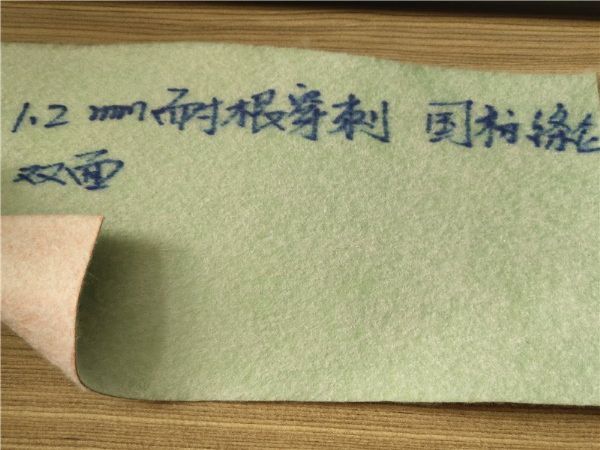 1.2mm耐根穿刺 国标绿色
双面